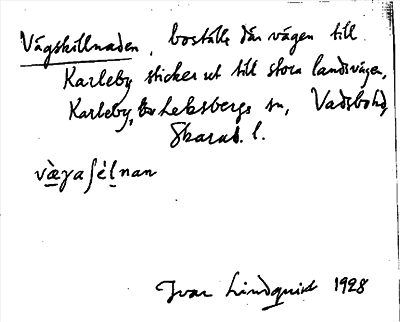 Vägskillnaden, boställe där vägen till
Karleby sticker ut till stora landsvägen,
Karleby, Leksbergs sn, Vadsbo hd,
Skarab. l.
væ̀ɡaʃélnan
Ivar Lindquist 1928